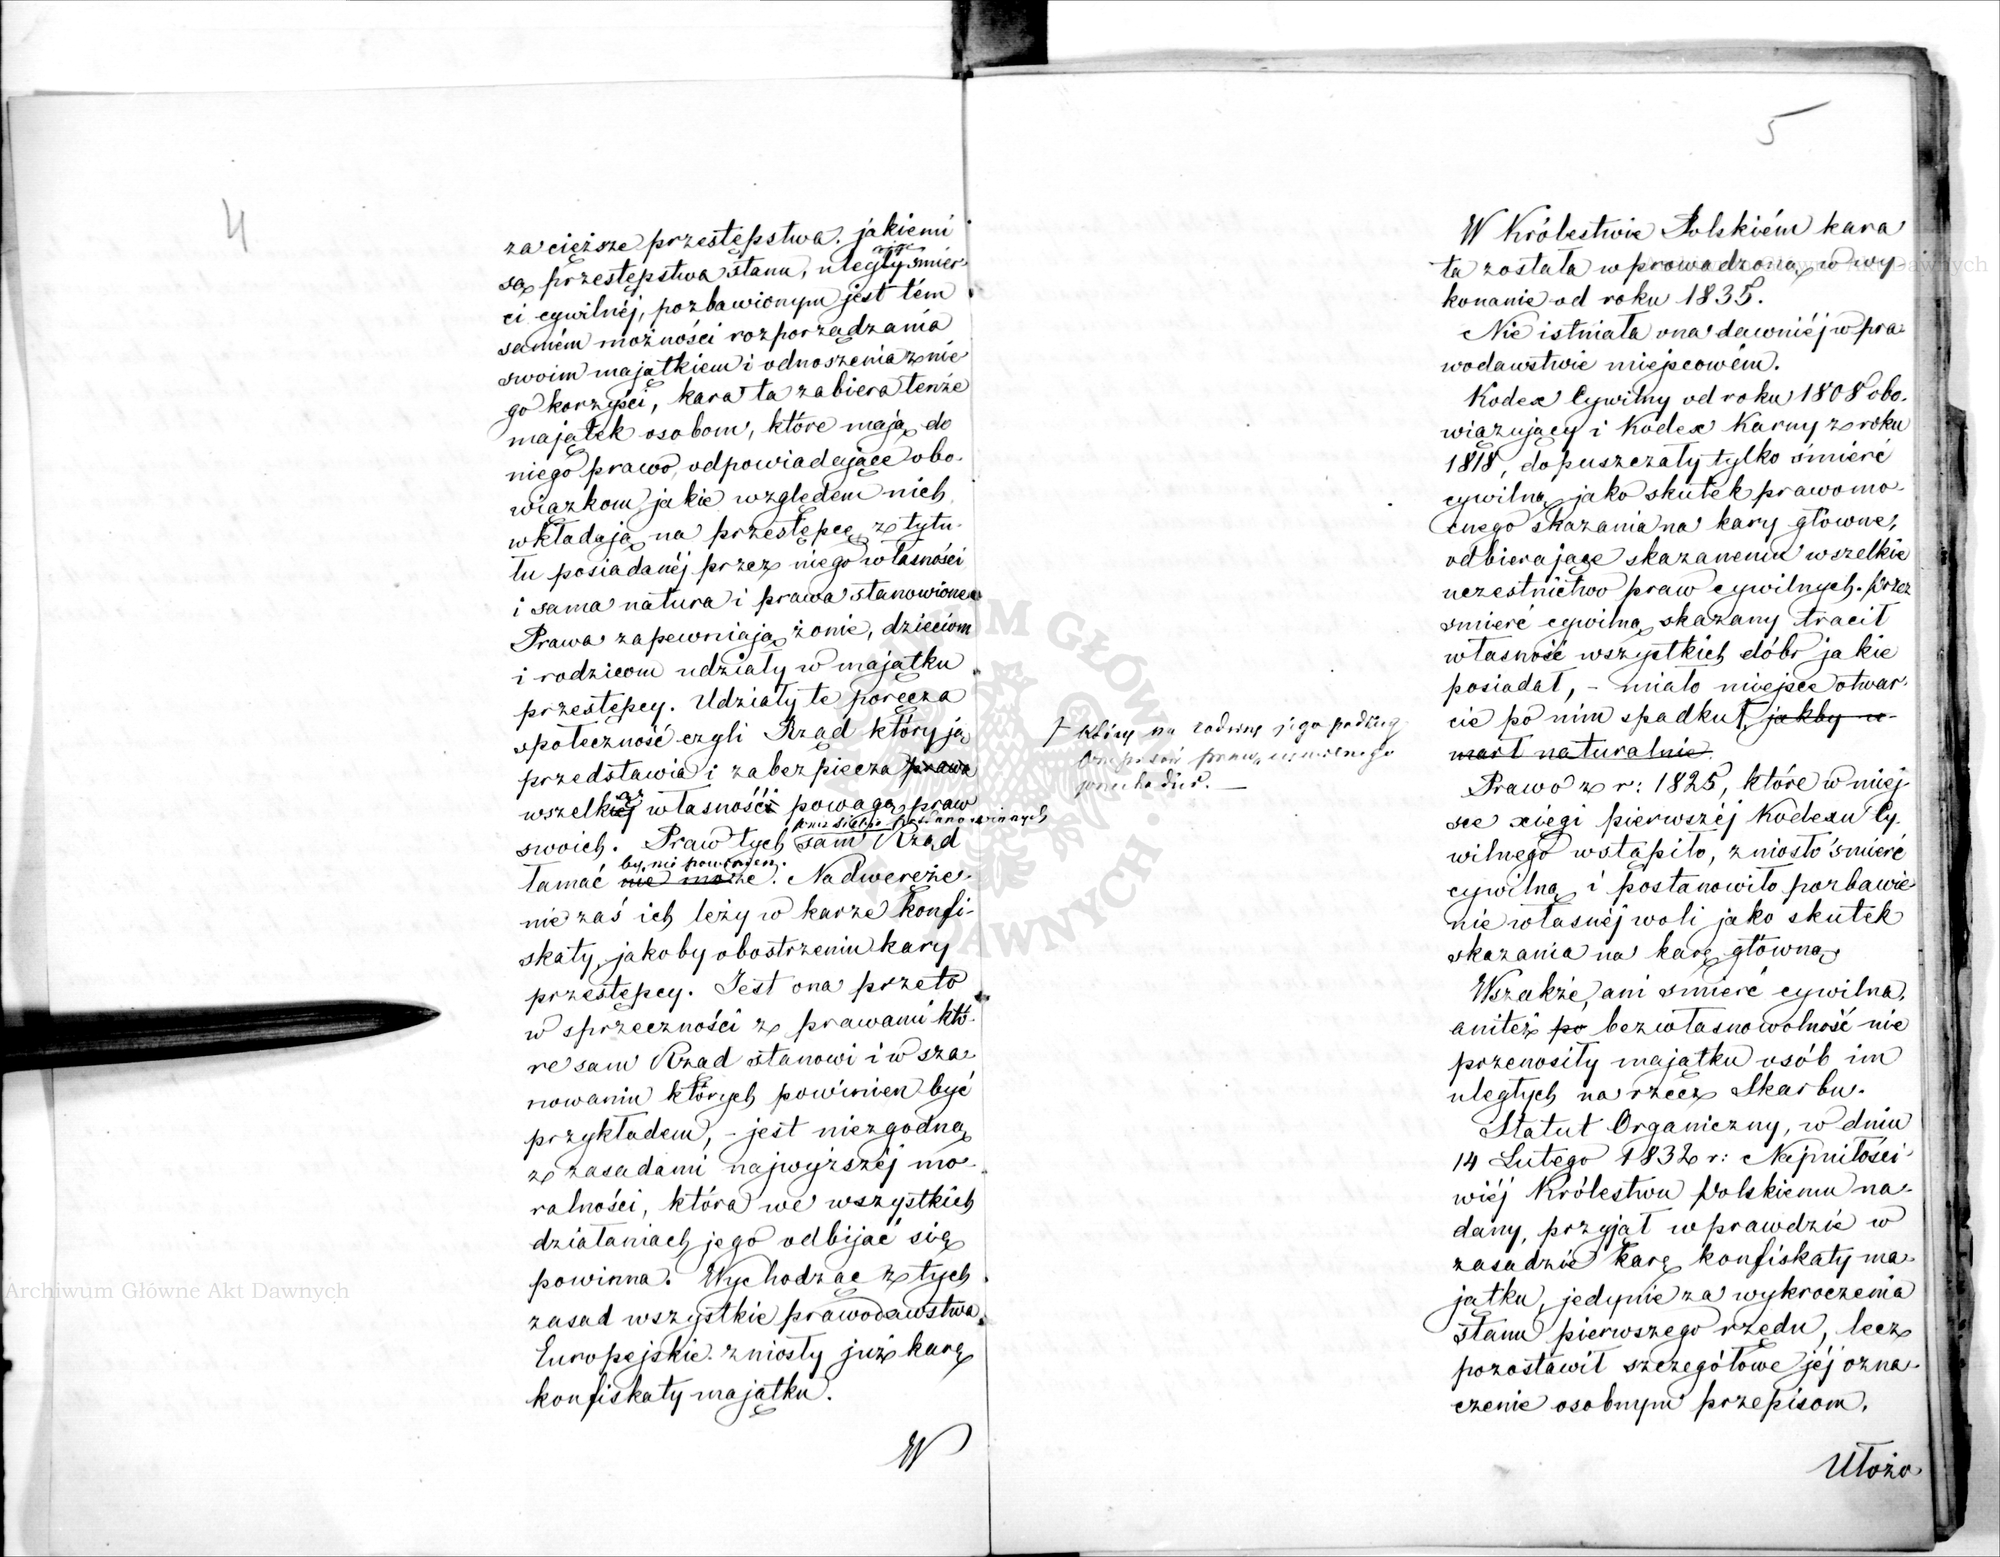 4
za cięższe przestępstwa, jakiemi
są przestępstwa stanu, uległy śmier-
ci cywilnéj, pozbawionym jest tém
samém możności rozporządzania
swoim majątkiem i odnoszenia z nie
go korzyści, kara ta zabiera tenże
majątek osobom, które mają do
niego prawo, odpowiadające obo-
wiązkom jakie względem nich
wkładają na przestępcę z tytu-
łu posiadanéj przez niego własności
i sama natura i prawa stanowione
Prawa zapewniają żonie, dzieciom
i rodzicom udziały w majątku
przestępcy. Udziały te poręcza
społeczność czyli Rząd który ją
przedstawia i zabezpiecza prawa
wszelkiéj własności powagą praw
przez siebie postanowionych
swoich. Praw tych sam Rząd
by nie powinien.
łamać nie może. Nadweręże-
nie zaś ich leży w karze konfi-
skaty, jakoby obostrzeniu kary
przestępcy. Jest ona przeto
w sprzeczności z prawami któ-
re sam Rząd stanowi i w sza-
nowaniu których powinien być
przykładem, – jest niezgodną
z zasadami najwyższéj mo-
ralności, która we wszystkich
działaniach jego odbijać się
powinna. Wychodząc z tych
zasad wszystkie prawodawstwa
Europejskie zniosły już karę
konfiskaty majątku.
W
5
W Królestwie Polskiém kara
ta została wprowadzoną w wy
konanie od roku 1835.
Nie istniała ona dawniéj w pra-
wodawstwie miejscowém.
Kodex Cywilny od roku 1808 obo-
wiązujący i Kodex Karny z roku
1818, dopuszczały tylko śmierć
cywilną jako skutek prawomo-
cnego skazania na kary główne,
odbierające skazanemu wszelkie
uczestnictwo praw cywilnych. Przez
śmierć cywilną skazany tracił
własność wszystkich dóbr jakie
posiadał, – miało miejsce otwar-
cie po nim spadku †, jakby u-
marł naturalnie.
† który na rodzinę jego podług
przepisów prawa cywilnego
przechodził. —
Prawo z r: 1825, które w miej-
sce xięgi pierwszéj Kodexu Cy-
wilnego wstąpiło, zniosło śmierć
cywilną i postanowiło pozbawie-
nie własnéj woli jako skutek
skazania na karę główną.
Wszakże, ani śmierć cywilna,
ani też po bezwłasnowolność nie
przenosiły majątku osób im
uległych na rzecz Skarbu.
Statut Organiczny, w dniu
14 Lutego 1832 r: Najmiłości-
wiéj Królestwu Polskiemu na-
dany, przyjął wprawdzie w
zasadzie karę konfiskaty ma-
jątku, jedynie za wykroczenia
stanu pierwszego rzędu, lecz
pozostawił szczegółowe jéj ozna-
czenie osobnym przepisom.
Ułożo-
Archiwum Główne Akt Dawnych
Archiwum Główne Akt Dawnych
ARCHIWUM GŁÓWNE AKT DAWNYCH